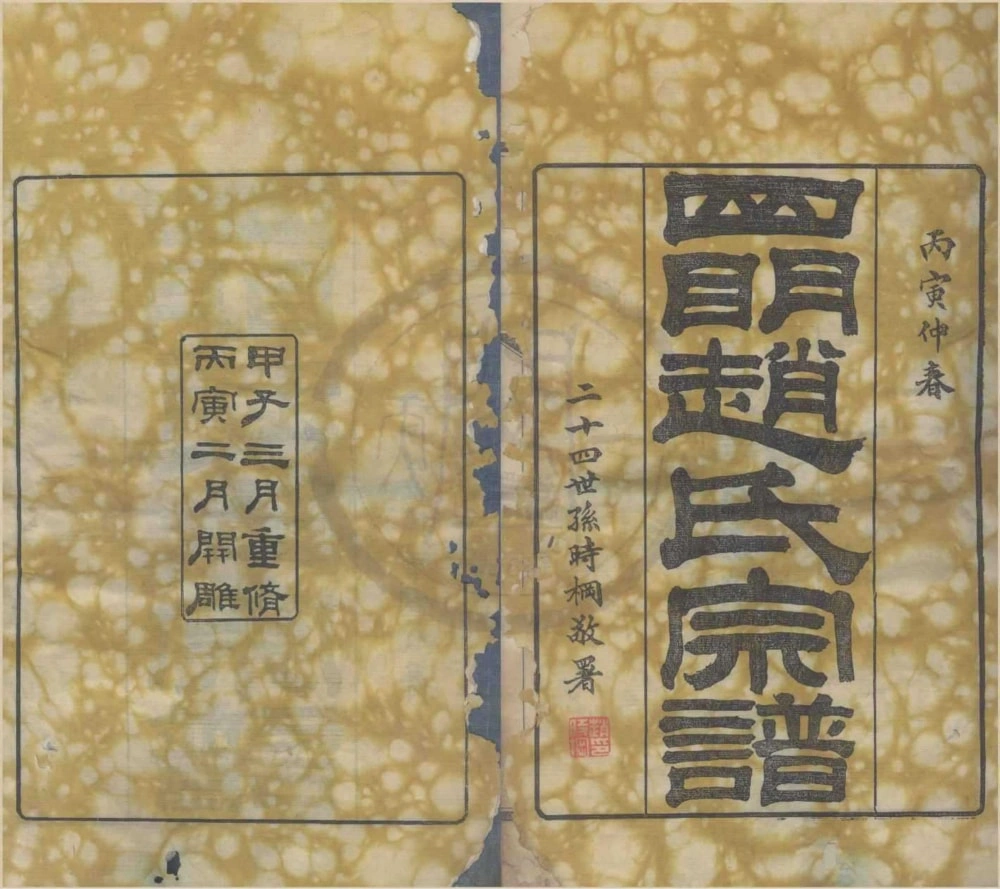 丙寅仲春
四明趙氏宗譜
二十四世孫時棡敬署
甲子三月重脩
丙寅二月開雕